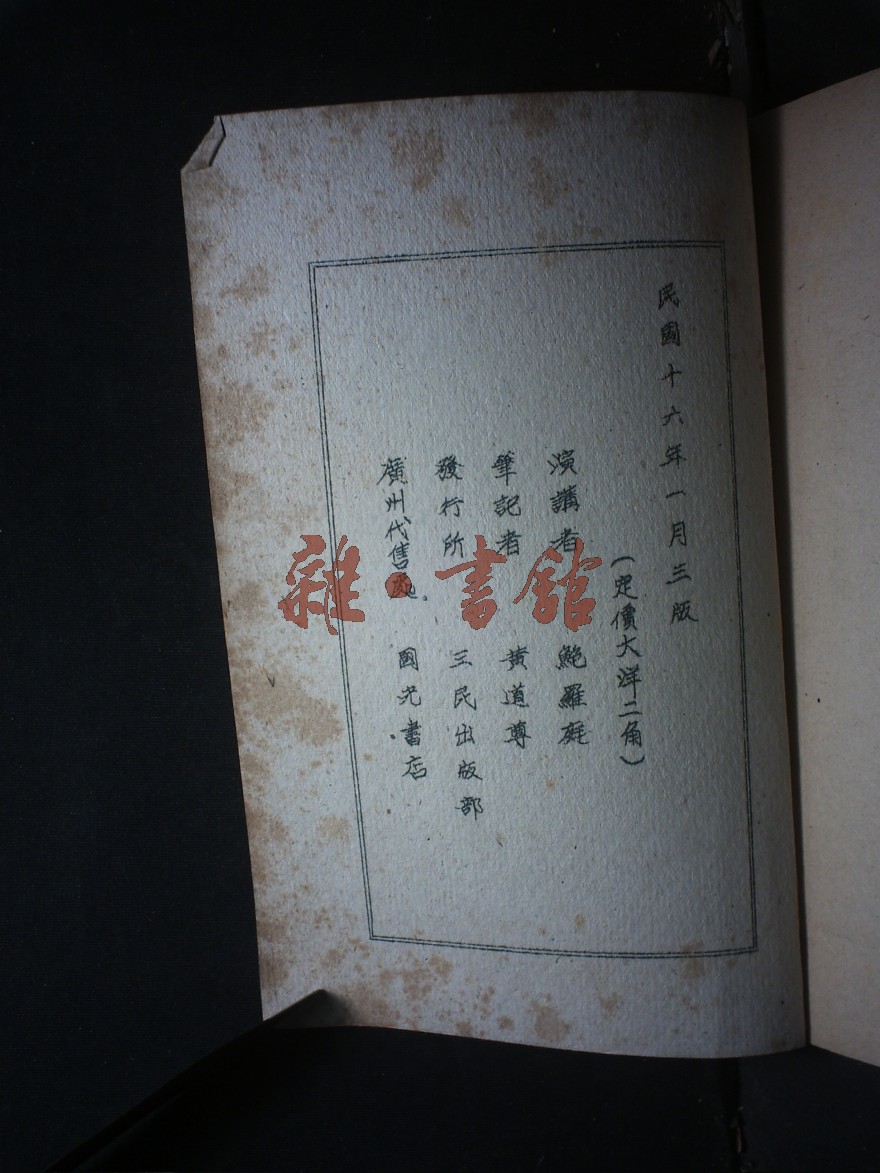 民國十六年一月三版
（定價大洋二角）
演講者　鮑羅庭
筆記者　黃道尊
發行所　三民出版部
廣州代售處　國光書店
雜·書館